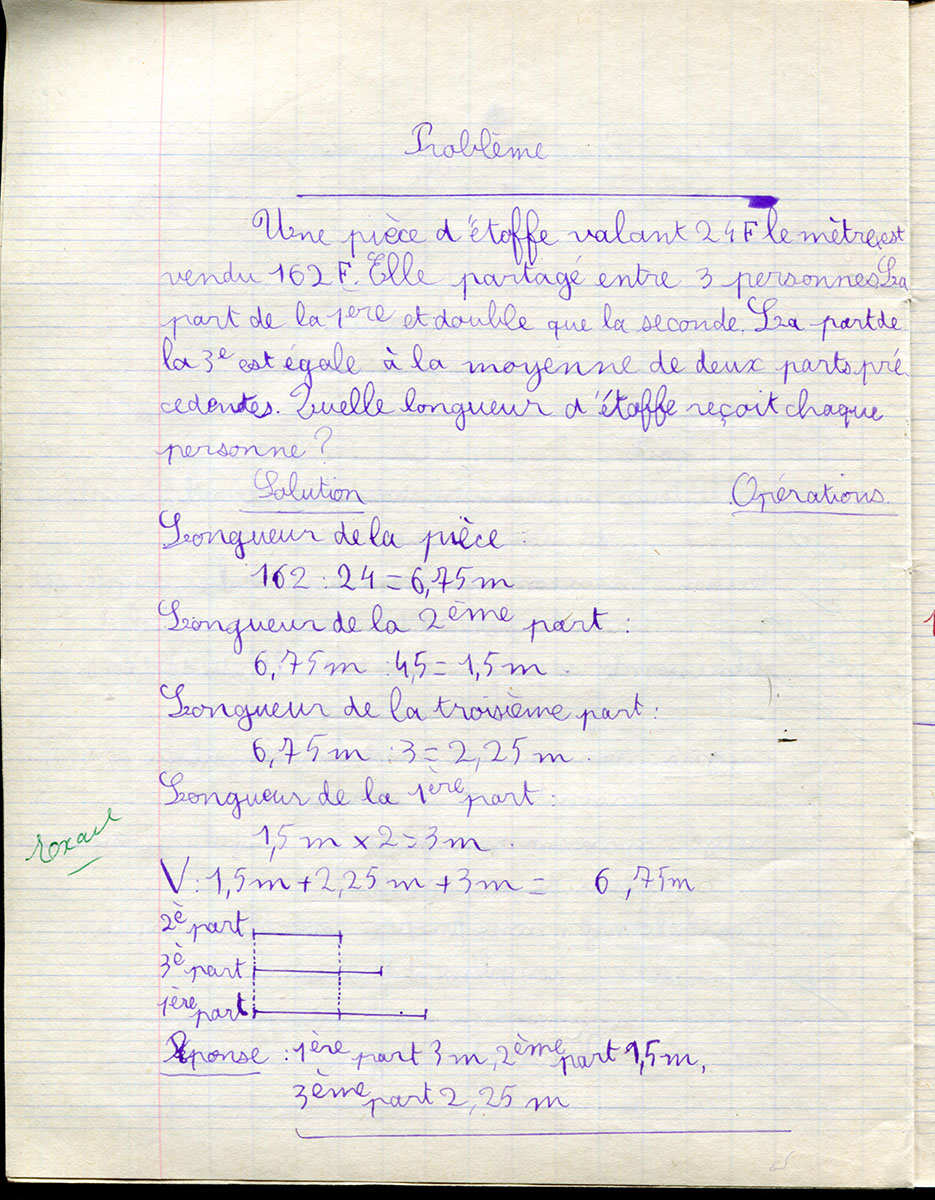 Problème
Une pièce d'étoffe valant 24F le mètre, est
vendu 162 F. Elle partagé entre 3 personnes La
part de la 1ere et double que la seconde. La part de
la 3e est égale à la moyenne de deux parts pré
cedentes. Quelle longueur d'étoffe reçoit chaque
personne ?
Solution Opérations
Longueur de la pièce :
162 : 24 = 6,75 m
Longueur de la 2ème part :
6,75 m : 4,5 = 1,5 m.
Longueur de la troisième part :
6,75 m : 3 = 2,25 m.
Longueur de la 1ère part :
1,5 m x 2 = 3 m.
exact
V : 1,5 m + 2,25 m + 3 m = 6,75m
2è part
3è part
1ère part
Réponse : 1ère part 3 m, 2ème part 1,5 m,
3ème part 2,25 m